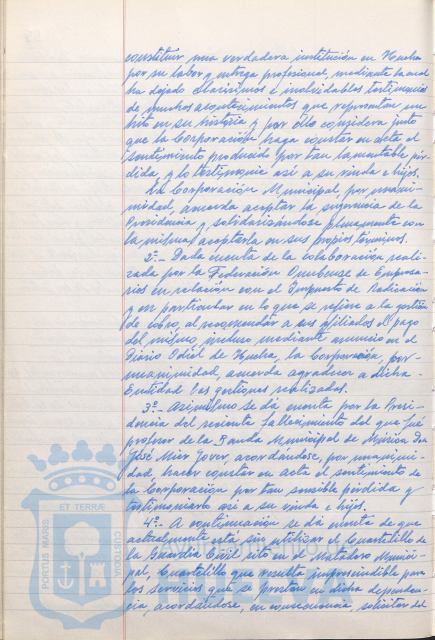 constituir una verdadera institución en Huelva
por su labor y entrega profesional, mediante la cual
ha dejado clarísimos e inolvidables testimonios
de muchos acontecimientos que representan un
hito en su historia y por ello considera justo
que la Corporación haga constar en acta el
sentimiento producido por tan lamentable pér-
dida, y lo testimonie así a su viuda e hijos.
La Corporación Municipal, por unani-
midad, acuerda aceptar la sugerencia de la
Presidencia y solidarizándose plenamente con
la misma aceptarla en sus propios términos.
2º.- Dada cuenta de la colaboración reali-
zada por la Federación Onubense de Empresa-
rios en relación con el Impuesto de Radicación
y en particular en lo que se refiere a la gestión
de cobro, al recomendar a sus afiliados el pago
del mismo, incluso mediante anuncio en el
Diario Odiel de Huelva, la Corporación, por
unanimidad, acuerda agradecer a dicha
Entidad las gestiones realizadas.
3º.- Asimismo se da cuenta por la Presi-
dencia del reciente fallecimiento del que fué
profesor de la Banda Municipal de Música Don
José Mier Jover, acordándose, por unanimi-
dad, hacer constar en acta el sentimiento de
la Corporación por tan sensible pérdida y
testimoniarlo así a su viuda e hijos.
4º.- A continuación se da cuenta de que
actualmente está sin utilizar el Cuartelillo de
la Guardia Civil sito en el Matadero Munici-
pal, Cuartelillo que resulta imprescindible para
los servicios que se prestan en dicha dependen-
cia, acordándose, en consecuencia, solicitar del
PORTUS MARIS
ET TERRÆ
CUSTODIA